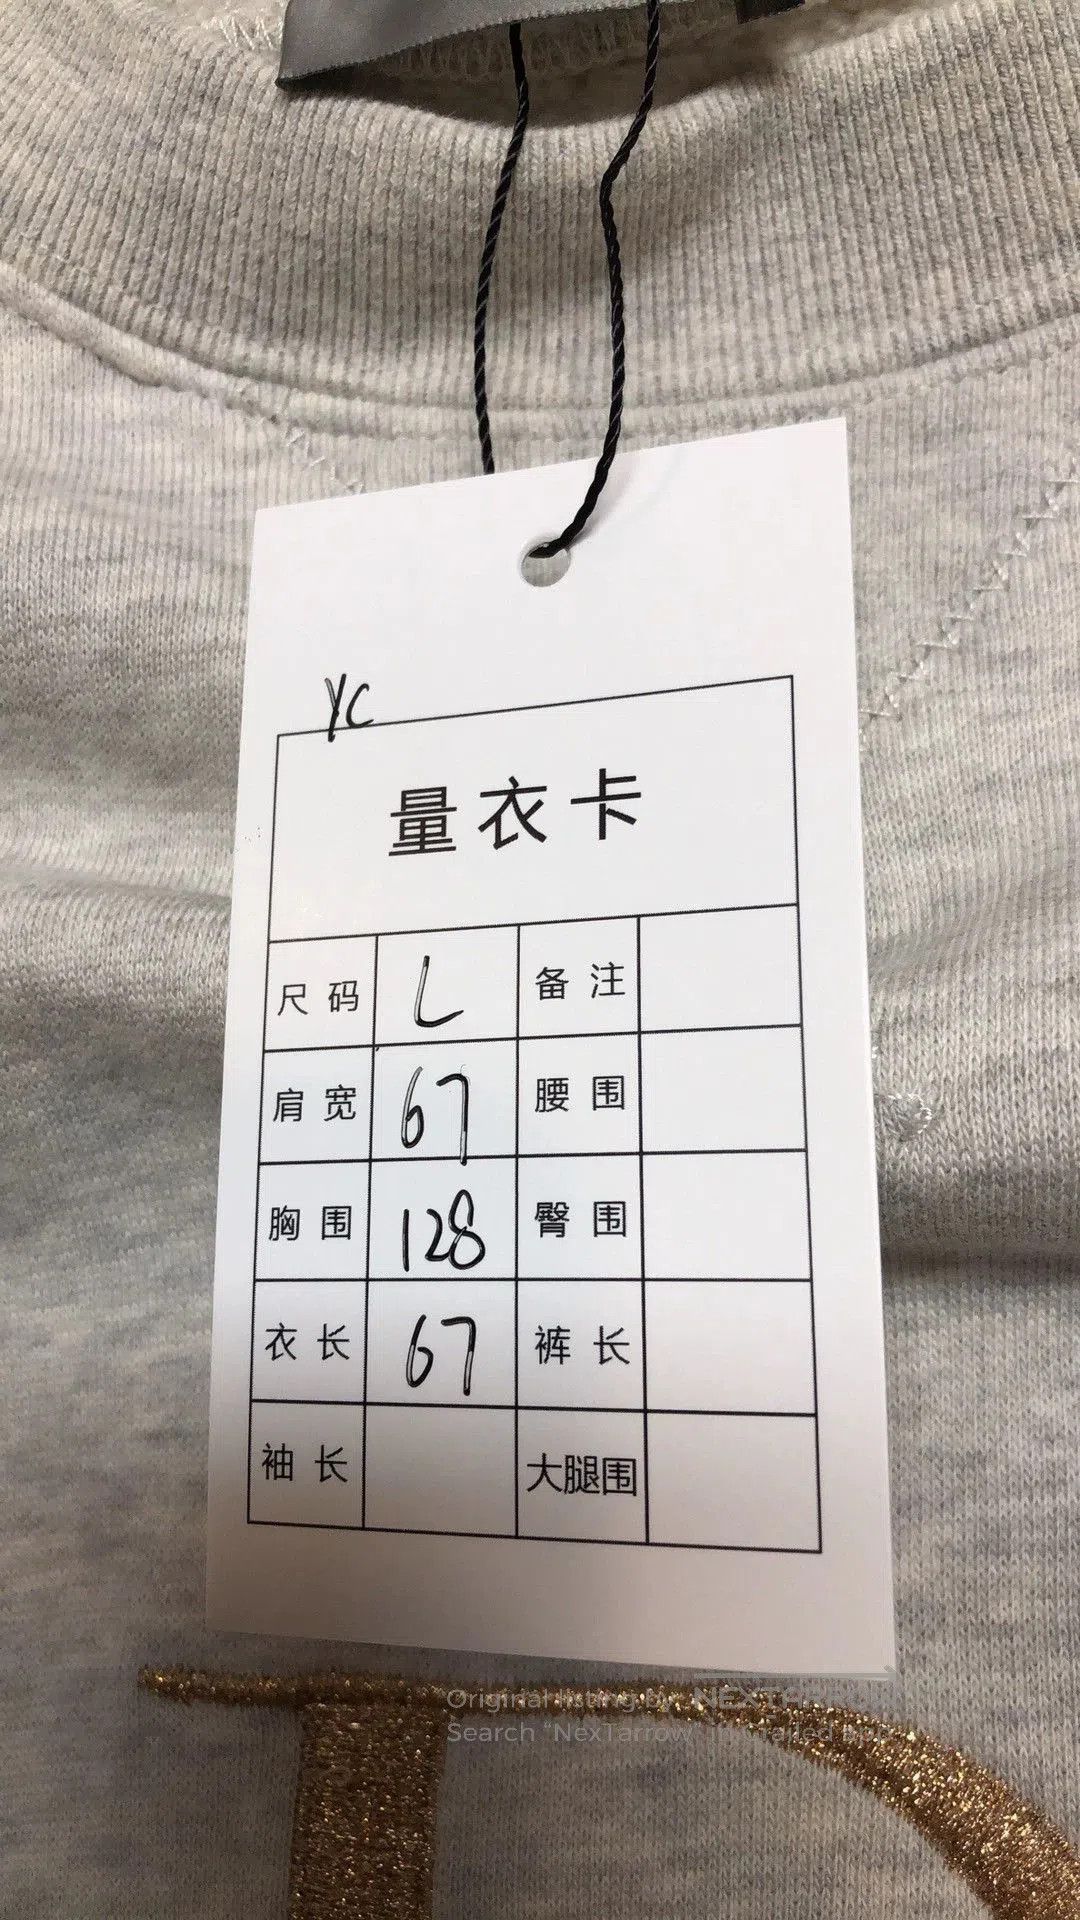 YC
量衣卡
尺码 L 备注
肩宽 67 腰围
胸围 128 臀围
衣长 67 裤长
袖长 大腿围
Original listing by: NEXTARROW
Search "NexTarrow" in